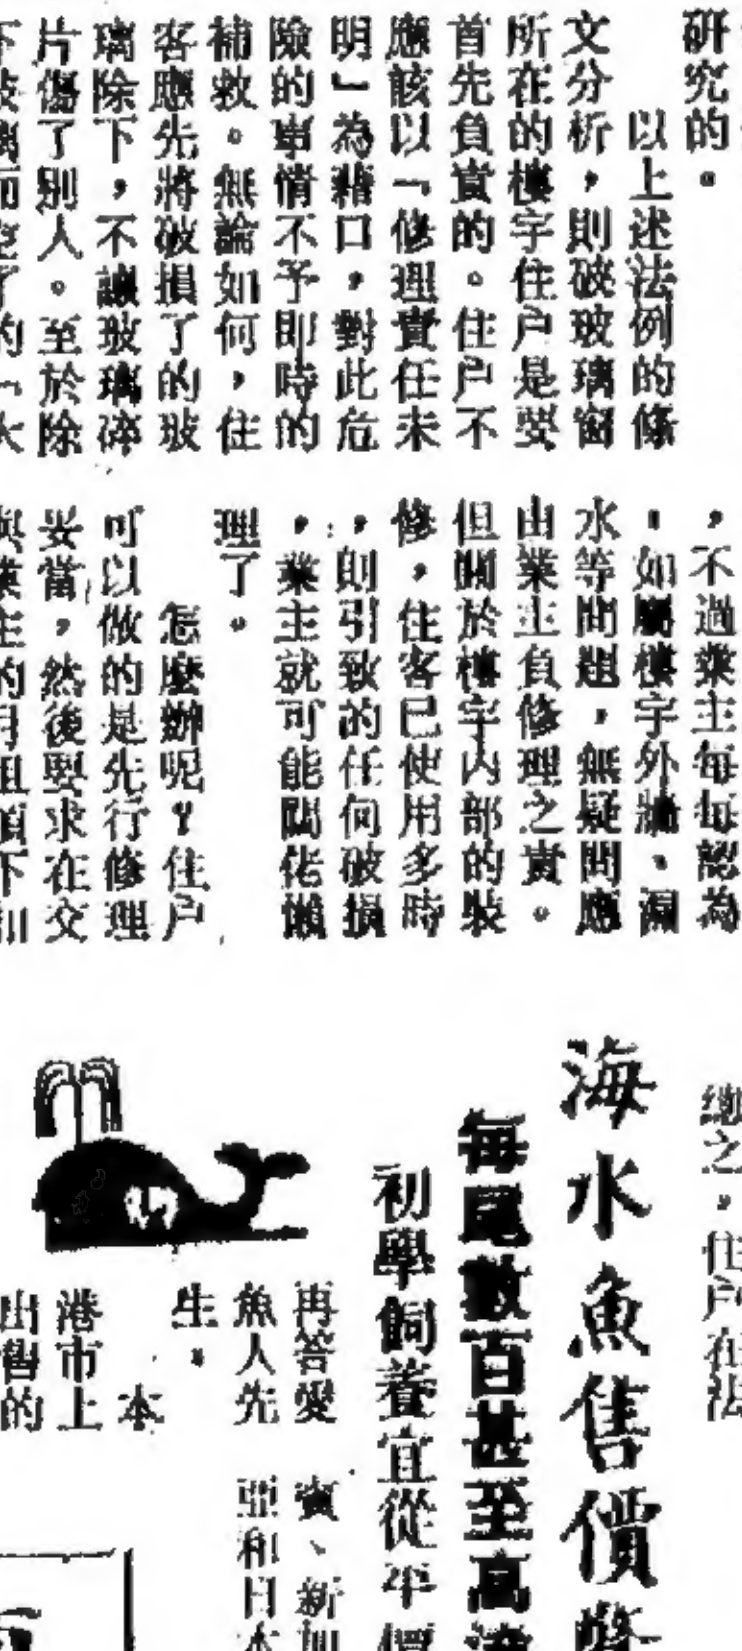 研究的。
以上述法例的條
文分析，則破玻璃窗
所在的樓宇住戶是要
首先負責的。住戶不
應該以「修理責任未
明」為藉口，對此危
險的事情不予即時的
補救。無論如何，住
客應先將破損了的玻
璃除下，不讓玻璃碎
片傷了別人。至於除
，不過業主每每認為
，如屬樓宇外牆、漏
水等問題，無疑問應
由業主負修理之責。
但關於樓宇內部的裝
修，住客已使用多時
，則引致的任何破損
，業主就可能闊佬懶
理了。
怎麼辦呢？住戶
可以做的是先行修理
妥當，然後要求在交
總之，住戶在法
海水魚售價
每尾數百甚至高達
初學飼養宜從平價
再答愛
魚人先
生。
本
港市上
出售的
賓、新加
亞和日本